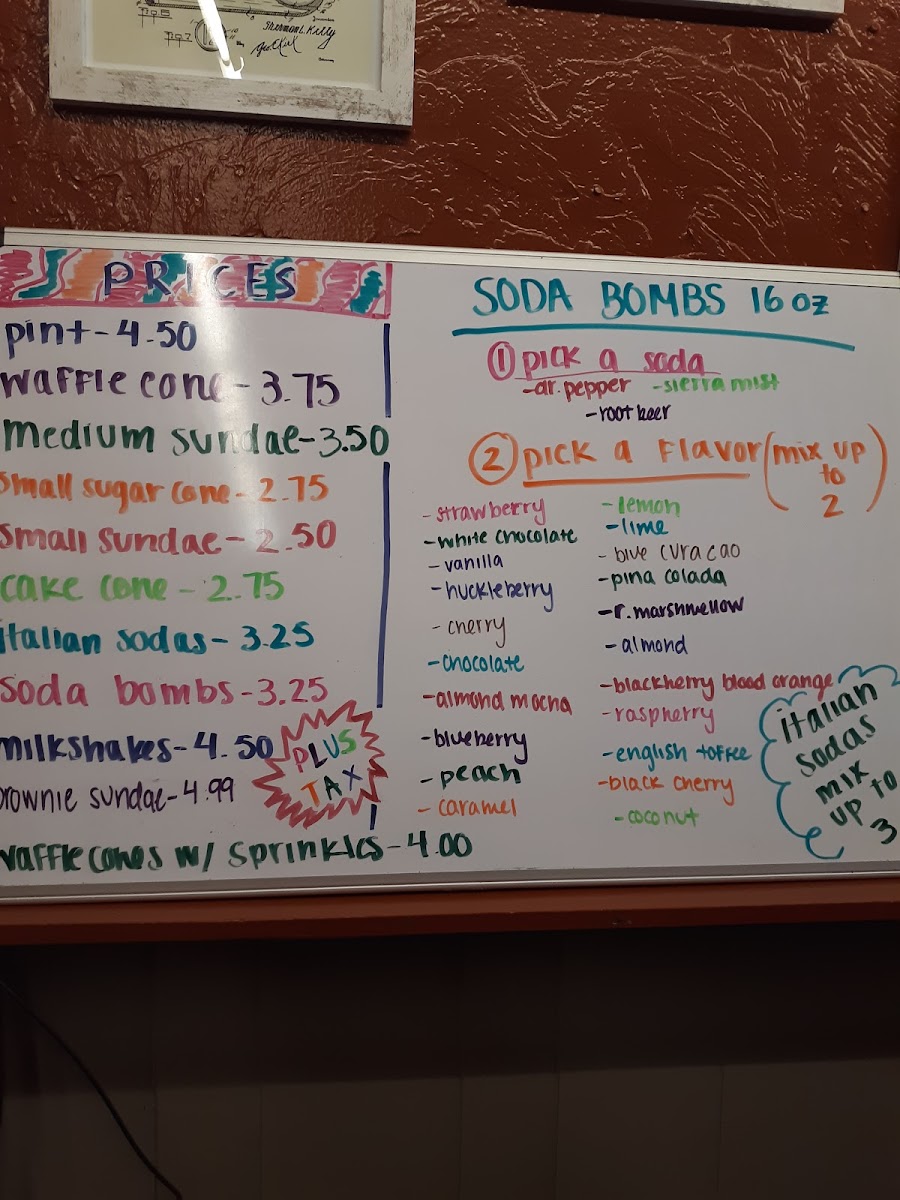 Fig 6
Fig 7
Thermon L. Kelly
PRICES
pint-4.50
waffle cone-3.75
medium sundae-3.50
small sugar cone-2.75
small sundae-2.50
cake cone-2.75
italian sodas-3.25
soda bombs-3.25
milkshakes-4.50
PLUS
TAX
rownie sundae-4.99
waffle cones w/ sprinkles-4.00
SODA BOMBS 16 oz
① pick a soda
-dr. pepper -sierra mist
-root beer
② pick a flavor (mix up
to
2)
-strawberry
-white chocolate
-vanilla
-huckleberry
-cherry
-chocolate
-almond mocha
-blueberry
-peach
-caramel
-lemon
-lime
-blue curacao
-pina colada
-r. marshmellow
-almond
-blackberry blood orange
-raspberry
-english toffee
-black cherry
-coconut
italian
sodas
mix
up to
3